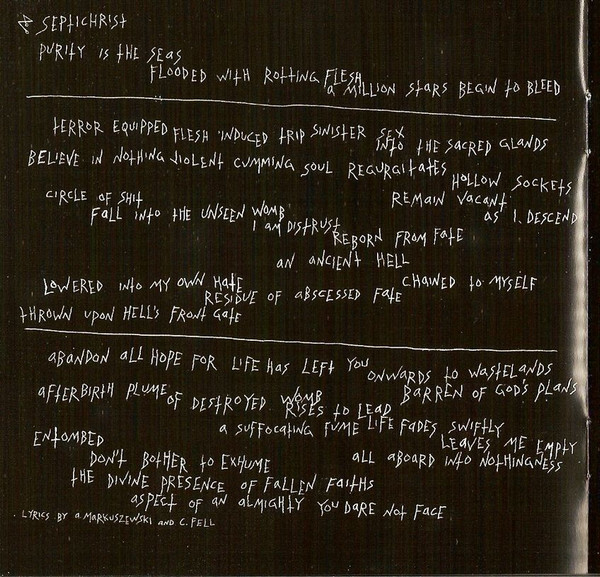 SEPTICHRIST
PURITY IS THE SEAS
FLOODED WITH ROTTING FLESH
A MILLION STARS BEGIN TO BLEED
TERROR EQUIPPED FLESH INDUCED TRIP SINISTER SEX
INTO THE SACRED GLANDS
BELIEVE IN NOTHING VIOLENT CUMMING SOUL REGURGITATES
HOLLOW SOCKETS
REMAIN VACANT
CIRCLE OF SHIT
FALL INTO THE UNSEEN WOMB
AS I DESCEND
I AM DISTRUST
REBORN FROM FATE
AN ANCIENT HELL
LOWERED INTO MY OWN HATE
CHAINED TO MYSELF
RESIDUE OF ABSCESSED FATE
THROWN UPON HELL'S FRONT GATE
ABANDON ALL HOPE FOR LIFE HAS LEFT YOU
ONWARDS TO WASTELANDS
BARREN OF GOD'S PLANS
AFTERBIRTH PLUME
OF DESTROYED WOMB
RISES TO LEAD
A SUFFOCATING FUME LIFE FADES SWIFTLY
LEAVES ME EMPTY
ENTOMBED
DON'T BOTHER TO EXHUME
ALL ABOARD INTO NOTHINGNESS
THE DIVINE PRESENCE OF FALLEN FAITHS
ASPECT OF AN ALMIGHTY YOU DARE NOT FACE
LYRICS BY A. MARKUSZEWSKI AND C. FELL